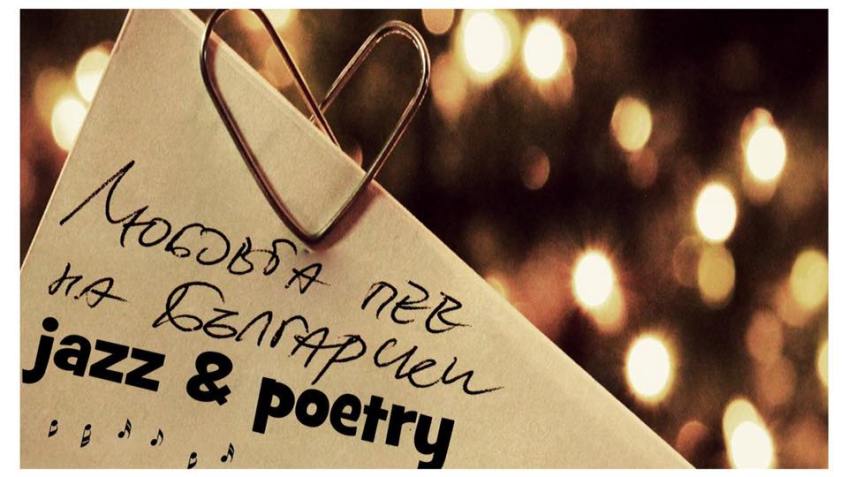 Любовта пее
на български
jazz & poetry